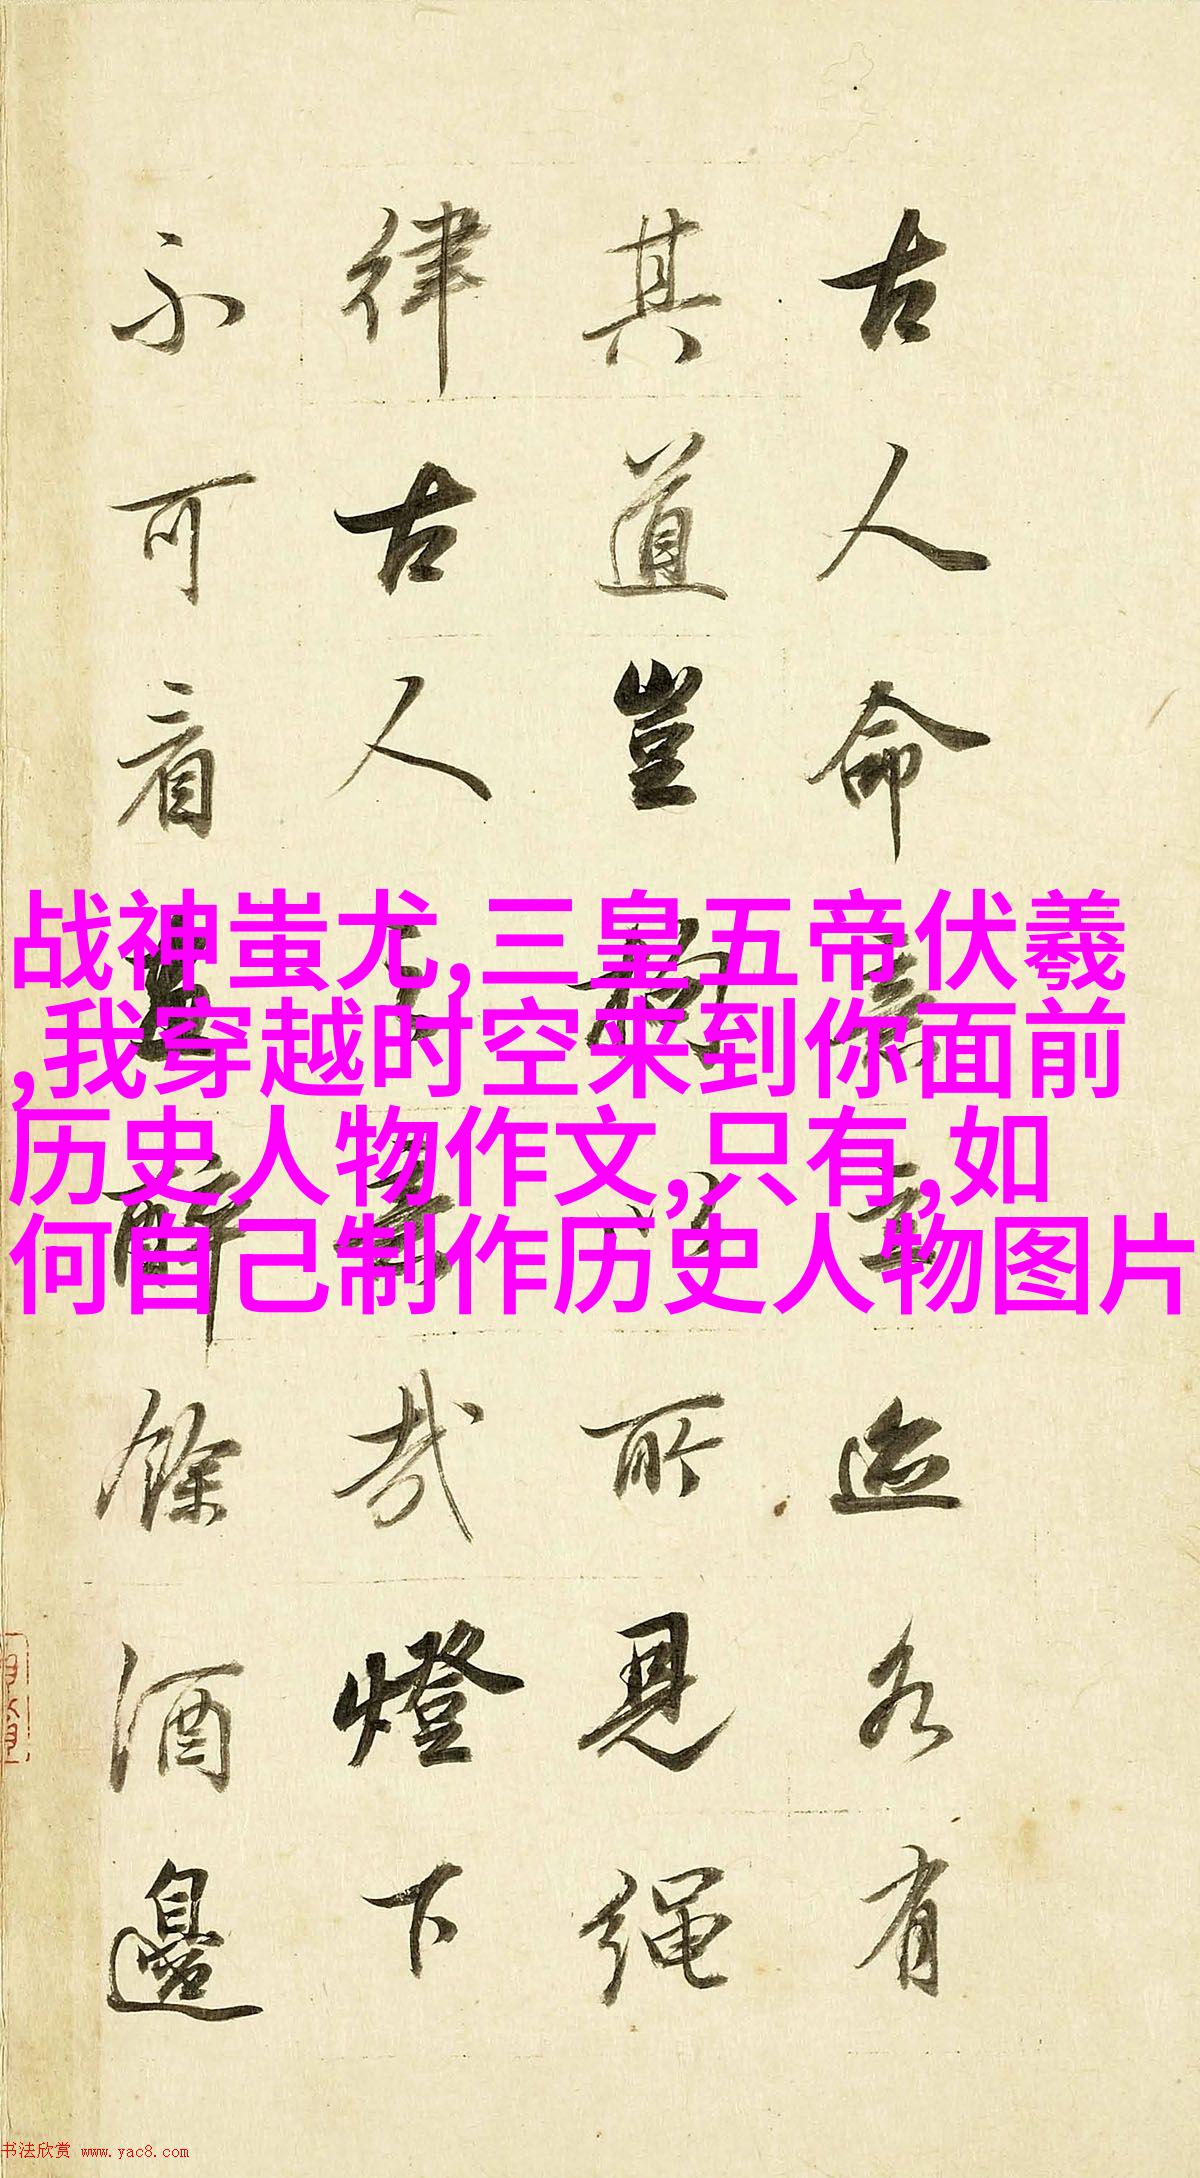 古人命迹各有
其道豈以所見繩
律古人哉燈下
不可看醉餘酒邊
战神蚩尤,三皇五帝伏羲
,我穿越时空来到你面前
历史人物作文,只有,如
何自己制作历史人物图片
书法欣赏 www.yac8.com